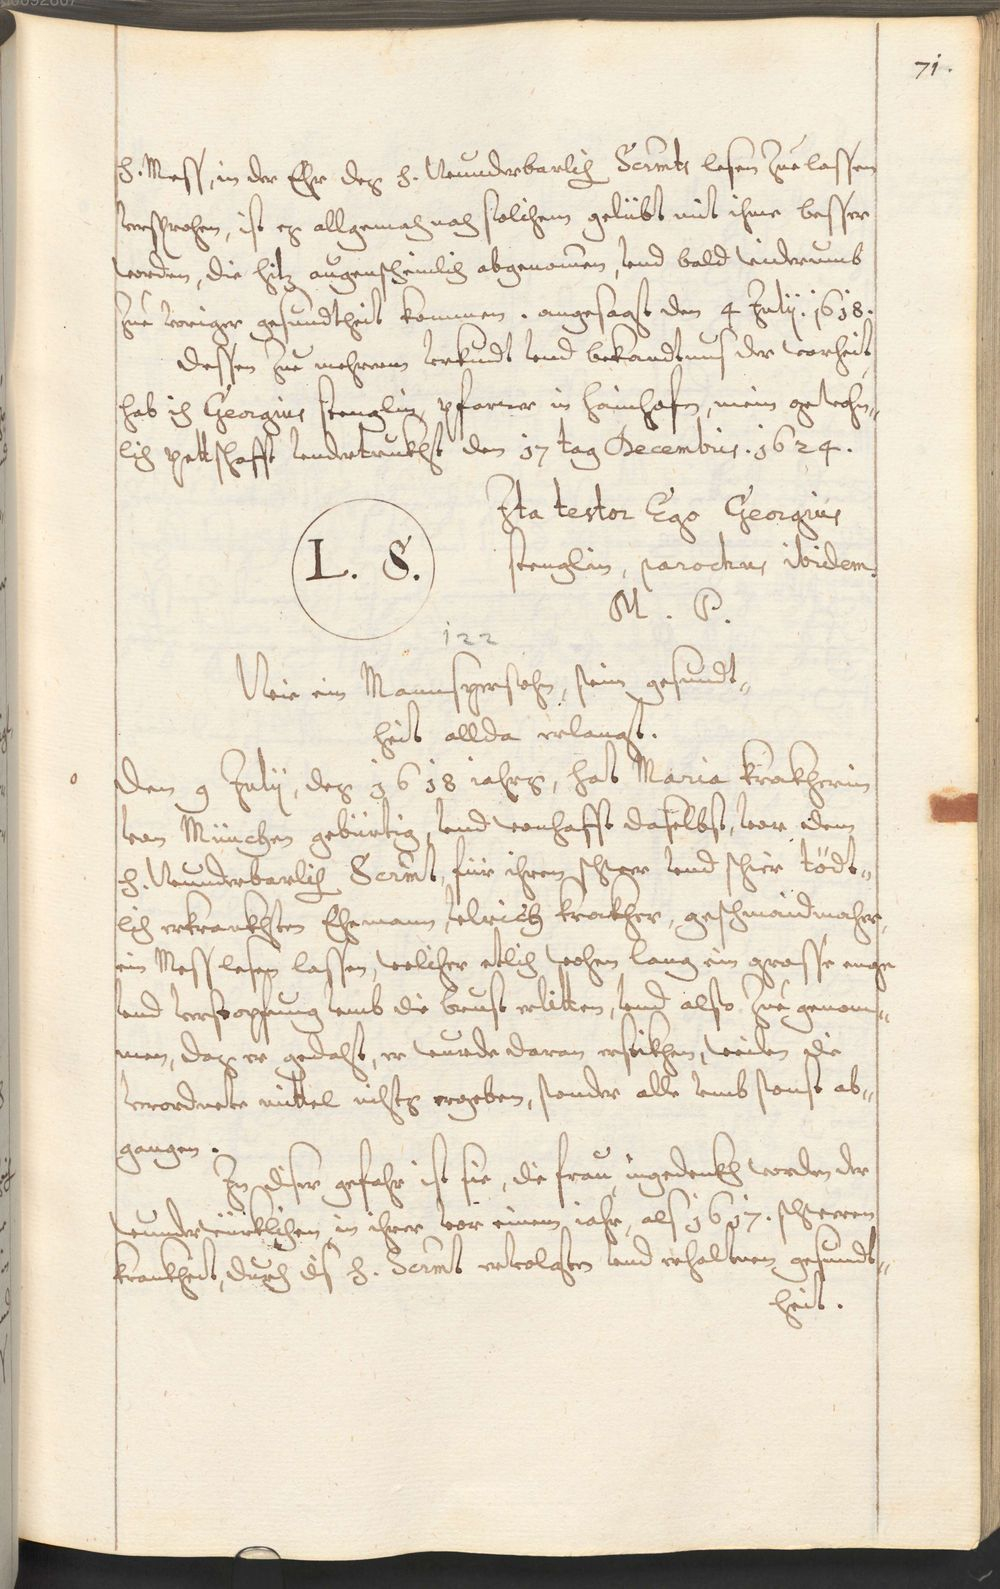 71.
h. Mess, in der Ehr deß h. Wunderbarlich Scrmts lesen zue lassen
versprochen, ist es allgemach nach solichem gelübt mit ihme besser
worden, die hitz augenscheinlich abgenomen, vnd bald widerumb
zue voriger gesundtheit kommen. angesagt den 4 Julij. 1618.
dessen zue mehrerm vrkundt vnd bekandtnus der warheit,
hab ich Georgius stenglin, pfarrer in hainhofn, mein gewohn„
lich pettschafft vndertrukht den 17 tag Decembris. 1624.
Ita testor Ego Georgius
stenglin, parochus ibidem.
L. S.
M. P.
122
Wie ein Mannspersohn, sein gesundt„
heit allda erlangt.
Den 9 Julij, deß 1618 iahrs, hat Maria krakherin
von München gebürtig, vnd wonhafft daselbst, vor dem
h. Wunderbarlich Scrmt, für ihren schwer vnd schier tödt„
lich erkrankhten Ehemann, Velrich krakher, geschmaidmacher,
ein Mess lesen lassen, welicher etlich wochen lang ein grosse enge
vnd verstopfung vmb die brust erlitten, vnd also zue genom„
men, daß er gedacht, er wurde daran erstikhen, weilen die
verordnete mittel nichts ergeben, sonder alle vmb sonst ab„
gangen.
In diser gefahr ist sie, die frau, ingedenkh worden der
wunderwürklichen, in ihrer vor einem iahr, als 1617. schweren
krankheit, durch diß h. Scrmt ervolgten vnd erhaltenen gesundt„
heit.